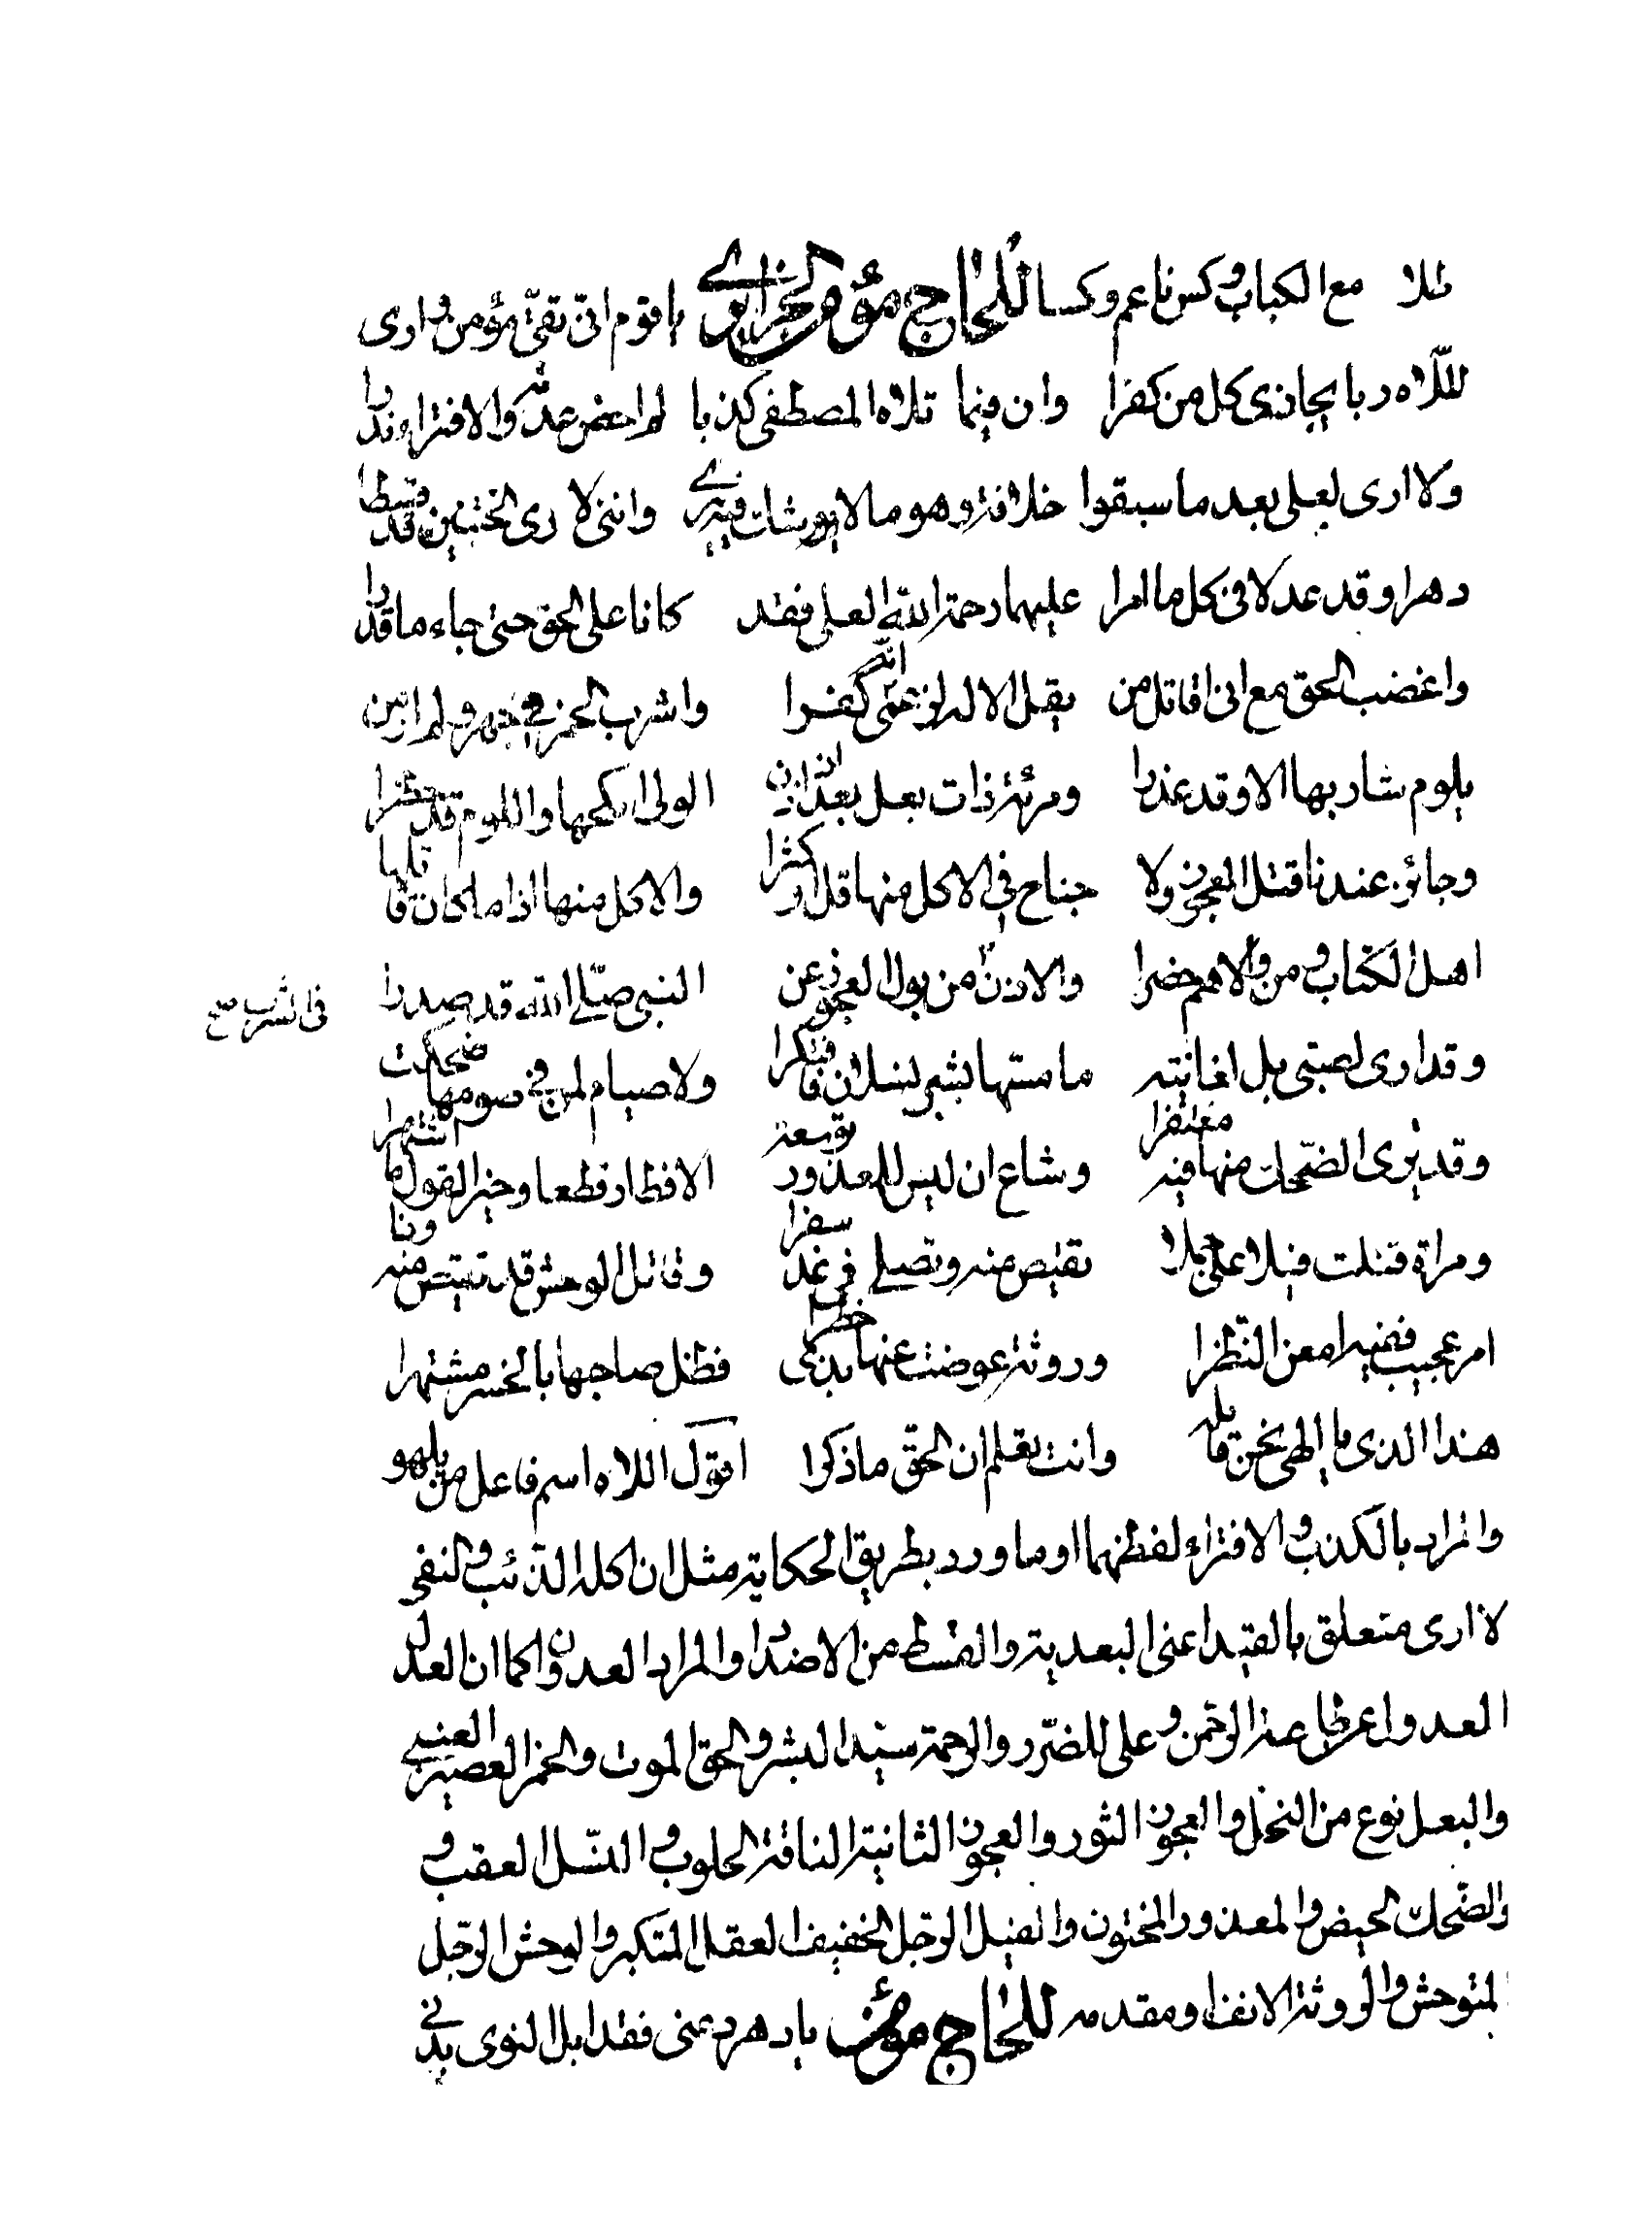 طلا مع الكباب وكس ناعم وكسا للحاج مؤمن الجزايري يا قوم انى تقىّ مؤمن وارى
لللاه ربا يجازى كل من كفرا وان فيما تلاه المصطفى كذبا لم احض عدّه والافترا وندرا
ولا ارى لعلى بعد ما سبقوا خلافة وهو ما لا يورثك فيه وانني لا رى الختنين قد قسطا
دهرا وقد عدلا فى كل ما امرا عليهما رحمة الله العلى فقد كانا على الحق حتى جاء ما قدرا
واغضب الحق مع انى اقاتل من يقل الاله لو عمى انه كفرا واشرب الخمر فى جهر ولم ارين
يلوم شاربها الا وقد عذرا ومرئة ذات بعل بعد ان اذن الولى انكحها واللوم قد حظرا
وجائز عندنا قتل العجوز ولا جناح فى الاكل منها قل او كثرا والاكل منها اذا ما كان قاتلها
اهل الكتاب ومن والاهم حضرا والاذن من بول العجوز عن النبى صلى الله قد صدرا
فى الشرب صح
وقد ارى لصبتى بل لغانية ما مستها بشر نسلان فافتكرا ولا صيام لمن فى صومها ضحكت
وقد يرى الضحك منها فيه مغتفرا وشاع ان ليس للمعذور توسعة الافطار قطعا وخير القول ما اشتهرا
ومراة قتلت فيلا على جبلا تقتص منه وتصلى فى غد سفرا وقاتل الوحش قد تقتص منه ونا
امر عجيب فضيه امعن النّظرا وروثة عوضت عنها بذى خطرا فظل صاحبها بالخسر مشتهرا
هذا الذى يا الهى نحن قائله وانت تعلم ان الحق ما ذكرا اقول اللاه اسم فاعل من يلهو
والمراد بالكذب والافتراء لفظهما او ما ورد بطريق الحكاية مثل ان اكله الذئب والنفى
لا ارى متعلق بالقيد اعنى البعدية والقسط من الاضداد والمراد العدوان كما ان العدل
العدول عرطا عنه الرحمن وعلى للضرر والرحمة سيد البشر والحق الموت والخمر العصير العنبى
والبعل نوع من النخل والعجوز الثور والعجوز الثانية الناقة الحلوب والنّسل العقب و
والضحك الحيض والمعذور المختون والفيل الرّجل الخفيف العقل المتكبر والوحش الرّجل
المتوحش والروثة الانف او مقدمه للحاج مؤمن يا دهر دعنى فقد ابلى النوى بدنى